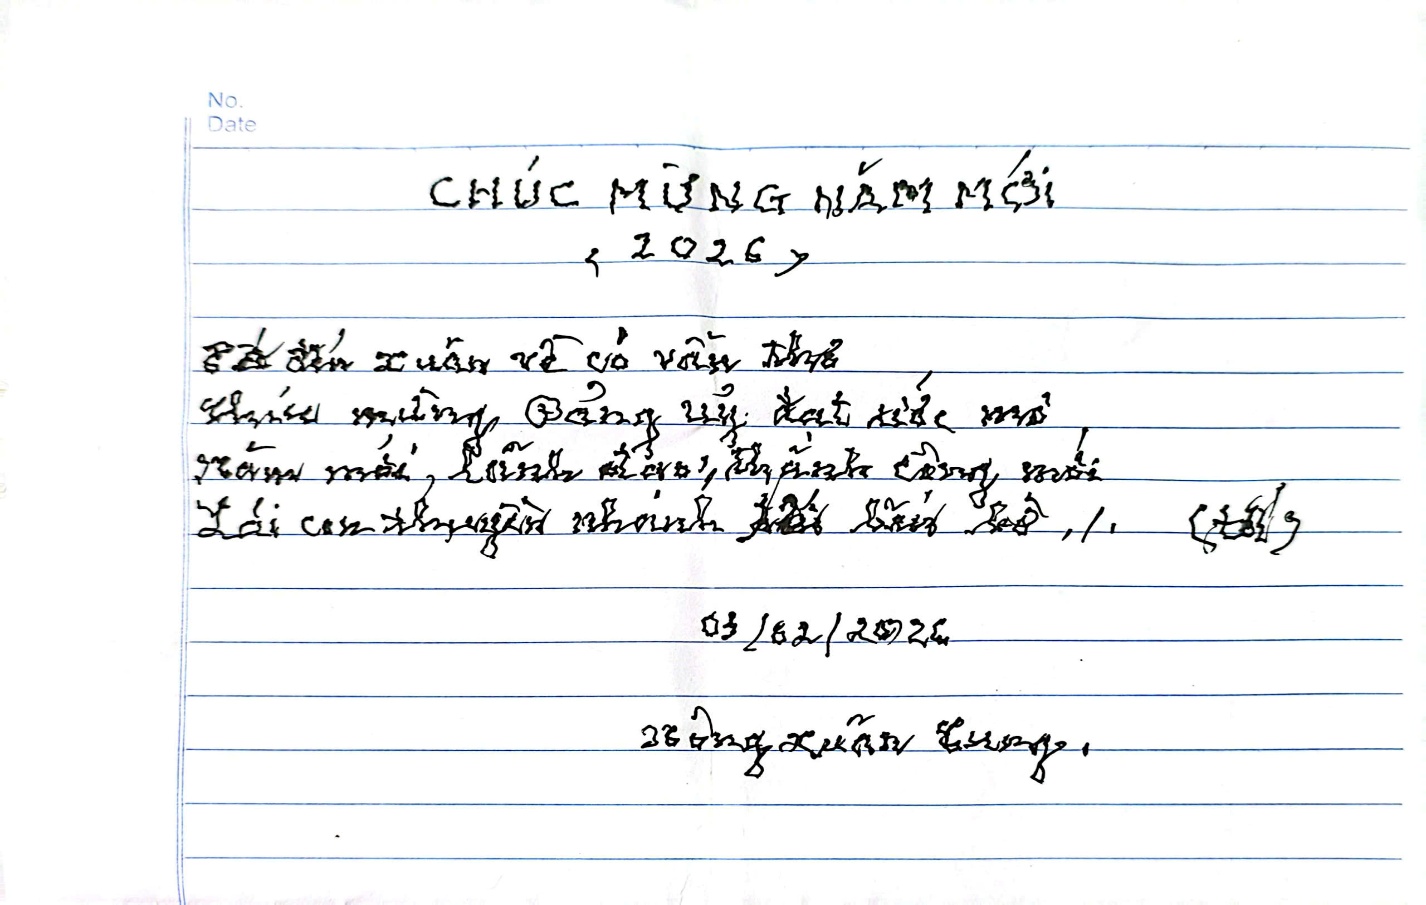 No.
Date
CHÚC MỪNG NĂM MỚI
( 2026 )
Tết đến xuân về có vần thơ
Chúc mừng Đảng uỷ đạt ước mơ
Năm mới, thành công mới
Lái con thuyền nhanh tới bến bờ ./. (tới)
03/02/2026
Hoàng Xuân Chung.